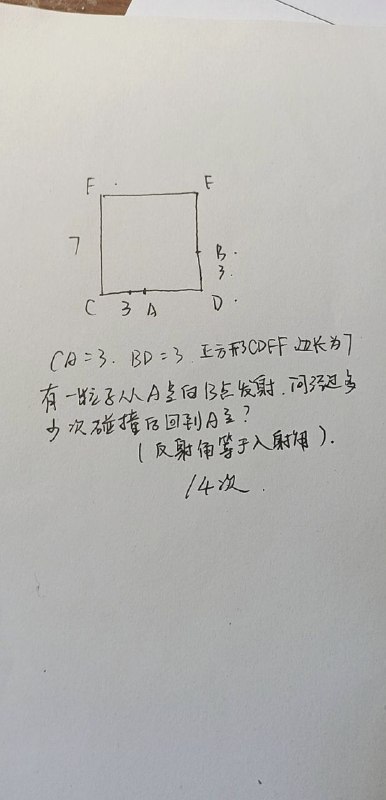 F E
7
B
3
C 3 A D
CA=3. BD=3. 正方形CDEF 边长为7
有一粒子从A点向B点发射.问经过多
少次碰撞后回到A点?
(反射角等于入射角).
14次.